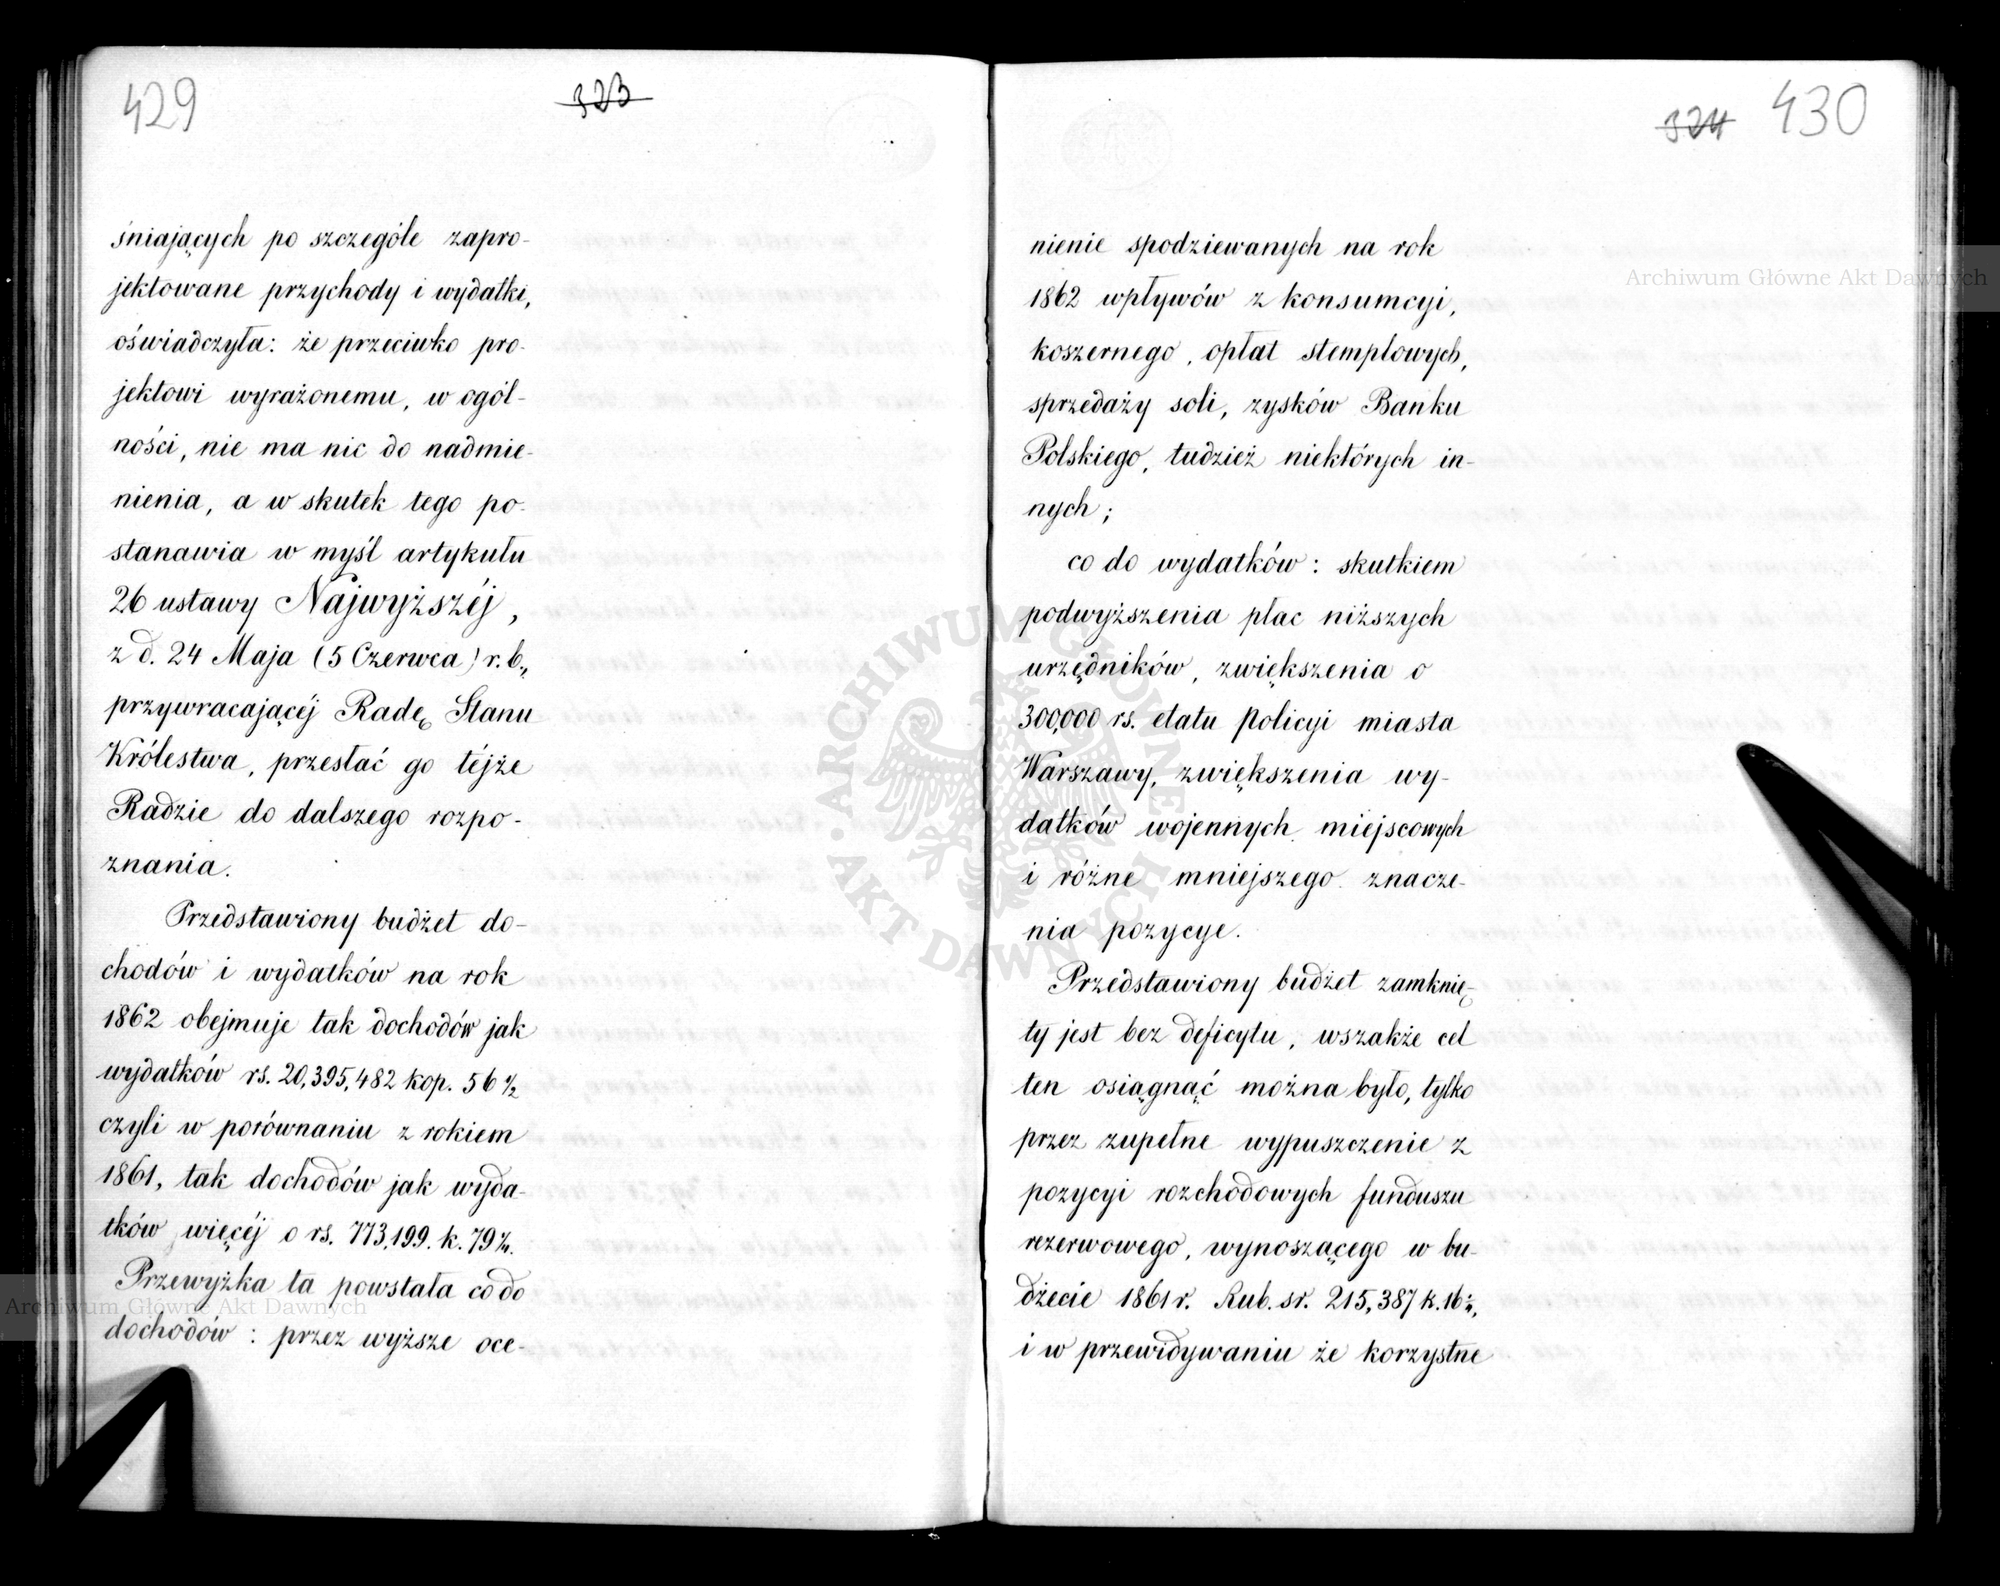 429
323
śniających po szczególe zapro-
jektowane przychody i wydatki,
oświadczyła: że przeciwko pro-
jektowi wyrażonemu, w ogól-
ności, nie ma nic do nadmie-
nienia, a w skutek tego po-
stanawia w myśl artykułu
26 ustawy Najwyższéj,
z d. 24 Maja (5 Czerwca) r. b.,
przywracającéj Radę Stanu
Królestwa, przesłać go téjże
Radzie do dalszego rozpo-
znania.
Przedstawiony budżet do-
chodów i wydatków na rok
1862 obejmuje tak dochodów jak
wydatków rs. 20,395,482 kop. 56 1/2
czyli w porównaniu z rokiem
1861, tak dochodów jak wyda-
tków więcéj o rs. 773,199. k. 79
Przewyżka ta powstała co do
dochodów: przez wyższe oce-
324 430
nienie spodziewanych na rok
1862 wpływów z konsumcyi,
koszernego, opłat stemplowych,
sprzedaży soli, zysków Banku
Polskiego, tudzież niektórych in-
nych;
co do wydatków: skutkiem
podwyższenia płac niższych
urzędników, zwiększenia o
300,000 rs. etatu policyi miasta
Warszawy, zwiększenia wy-
datków wojennych miejscowych
i różne mniejszego znacze-
nia pozycye.
Przedstawiony budżet zamknię-
ty jest bez deficytu, wszakże cel
ten osiągnąć można było, tylko
przez zupełne wypuszczenie z
pozycyi rozchodowych funduszu
rezerwowego, wynoszącego w bu-
dżecie 1861 r. Rub. sr. 215,387 k. 16
i w przewidywaniu że korzystne
Archiwum Główne Akt Dawnych
Archiwum Główne Akt Dawnych
ARCHIWUM GŁÓWNE AKT DAWNYCH